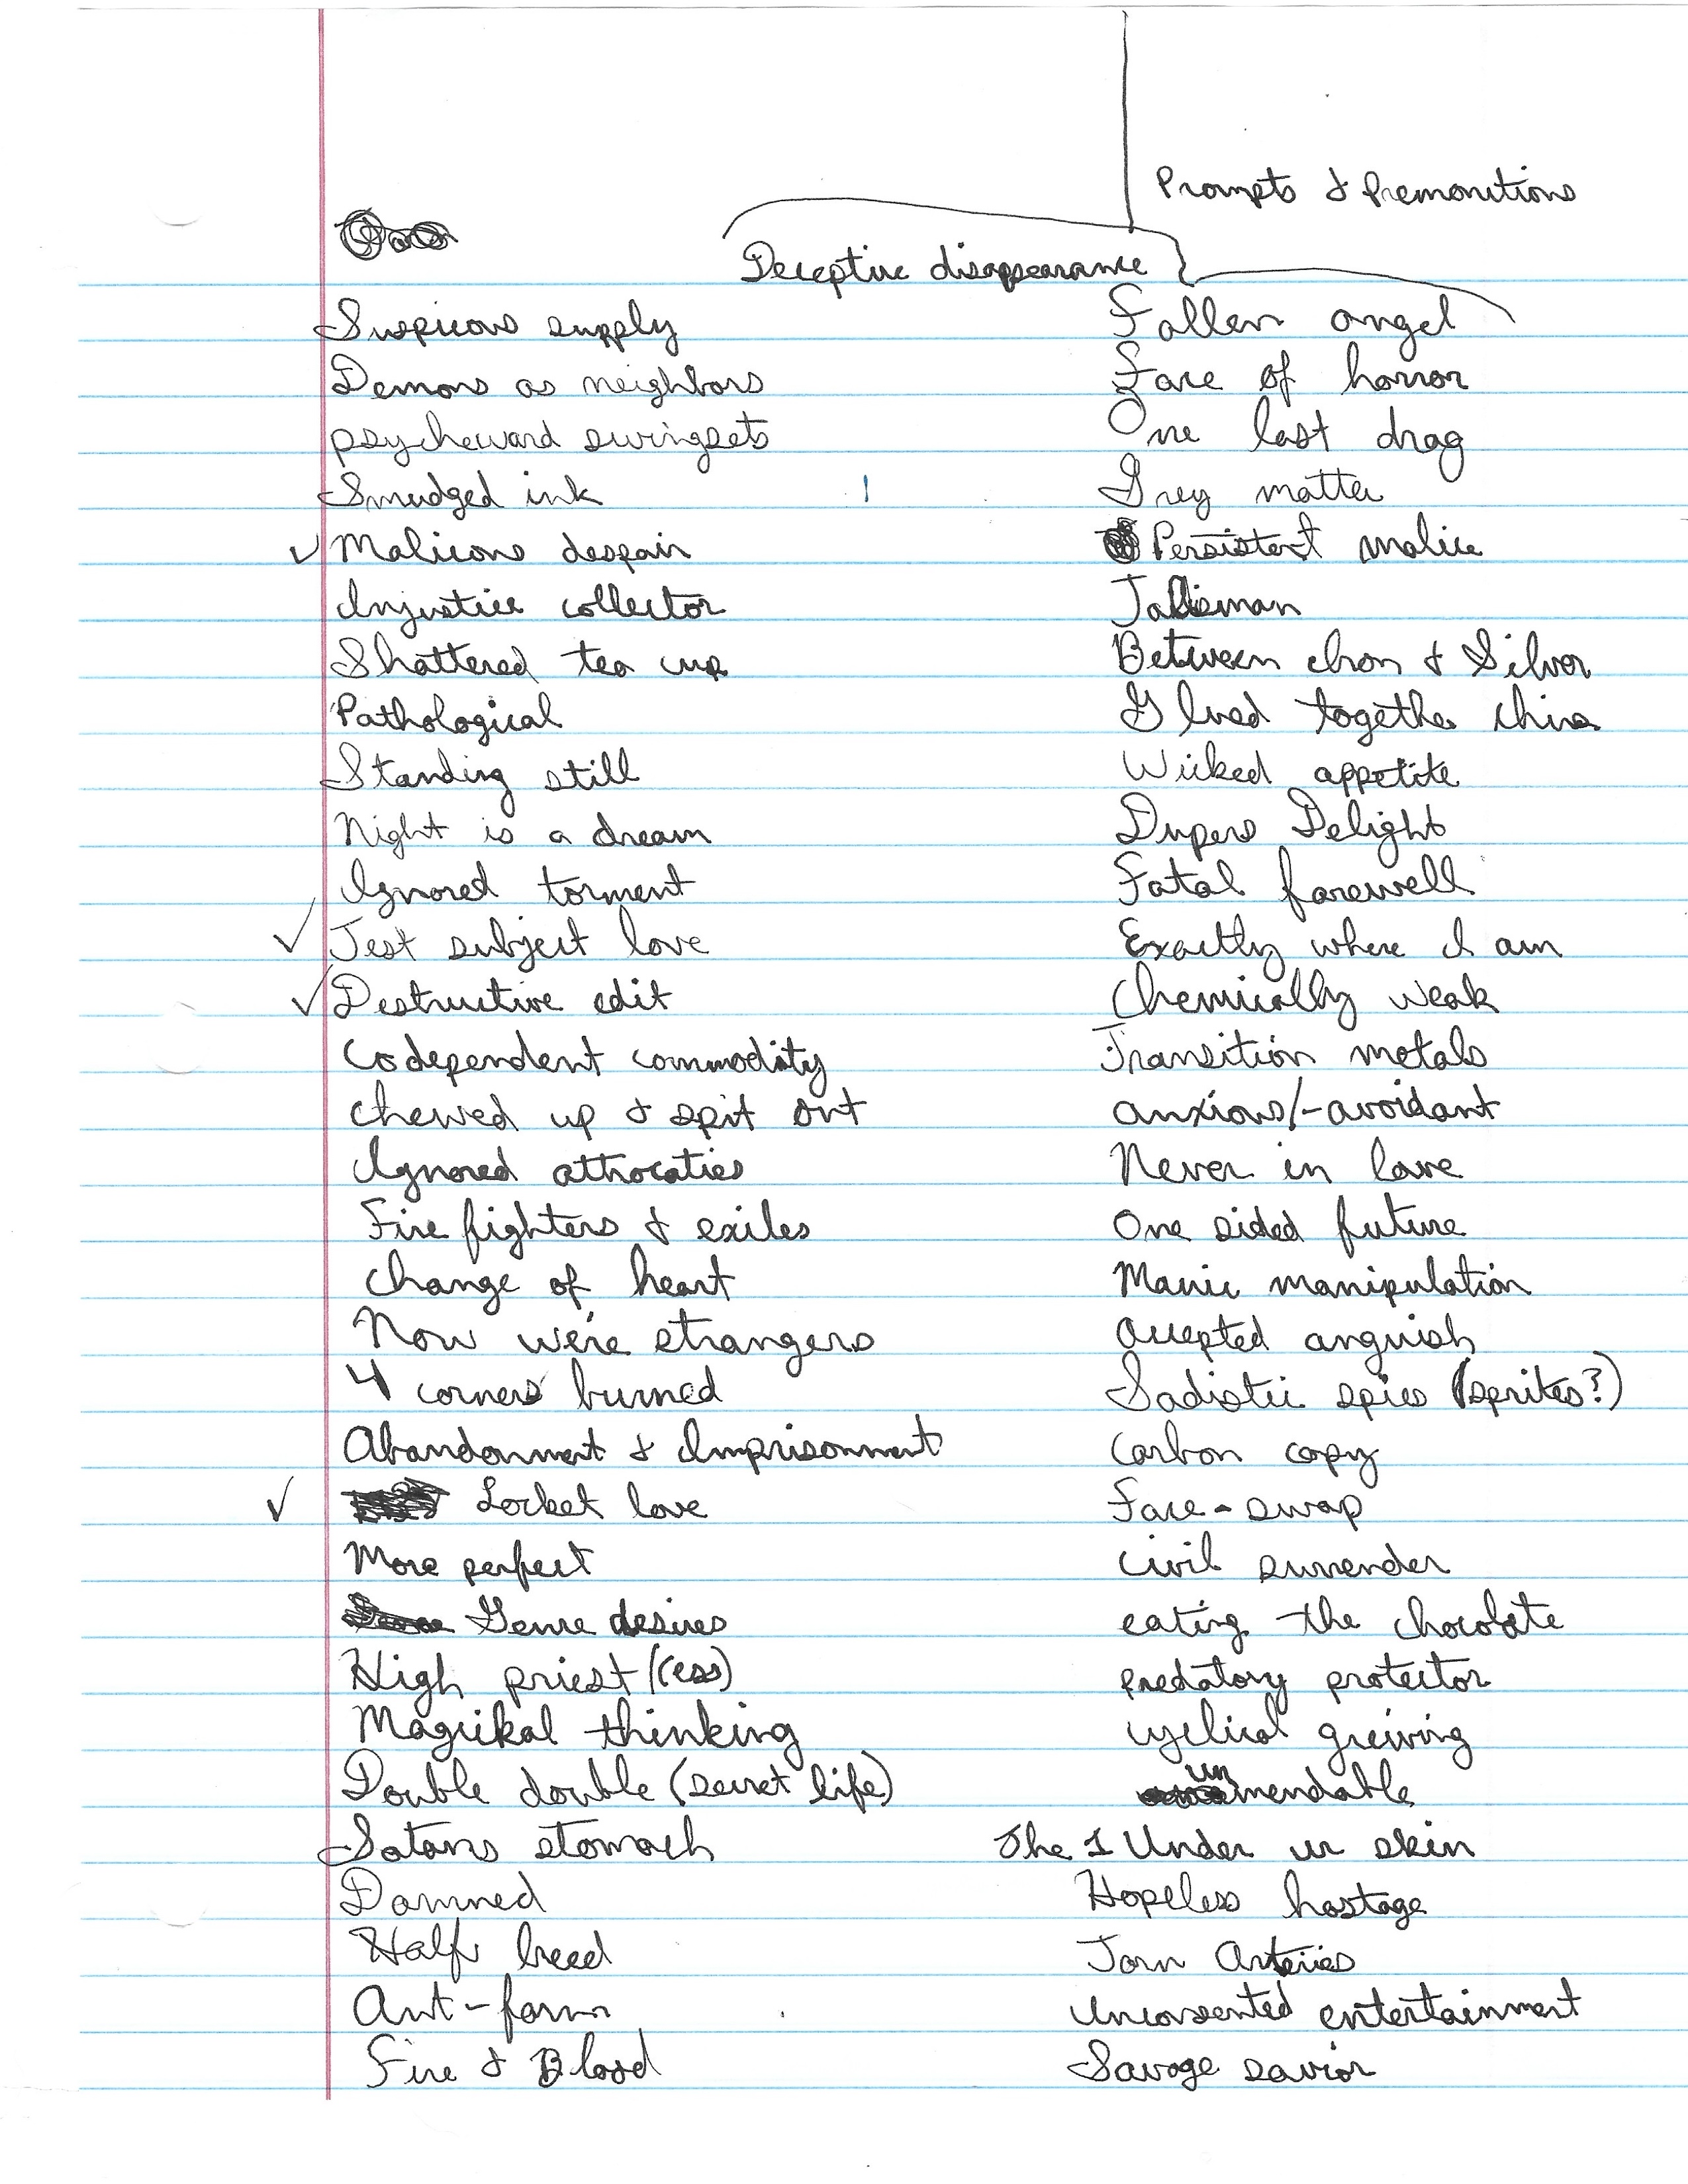 Prompts & Premonitions
Deceptive disappearance
Suspicous supply
Demons as neighbors
psycheward swingsets
Smudged ink
✓ Malicous despair
Injustice collector
Shattered tea cup
Pathological
Standing still
Night is a dream
Ignored torment
✓ Test subject love
✓ Destructive edit
Codependent commodity
chewed up & spit out
Ignored athrocaties
Fire fighters & exiles
Change of heart
Now we're strangers
4 corners burned
Abandonment & Imprisonment
✓ Locket love
More perfect
desires
High priest/(ess)
Magickal thinking
Double double (secret life)
Satans stomach
Damned
Half breed
Ant-farm
Fire & Blood
Fallen angel
Face of horror
One last drag
Grey matter
Persistent malice
Talisman
Between Iron & Silver
Glued together china
Wicked appetite
Dupers Delight
Fatal farewell
Exactly where I am
Chemically weak
Transition metals
anxious/-avoidant
Never in love
One sided future
Manic manipulation
Accepted anguish
Sadistic spies (sprites?)
Carbon copy
Face-swap
Civil surrender
eating the chocolate
predatory protector
cyclical greiving
unmendable
The 1 Under ur skin
Hopeless hostage
Torn Arteries
Unconsented entertainment
Savage savior